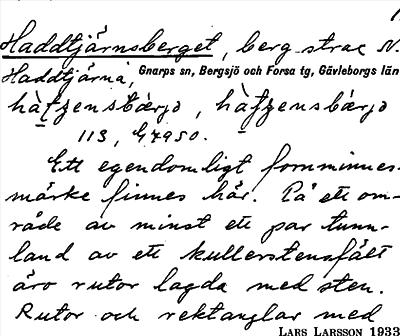 Haddtjärnsberget, berg strax N.
Haddtjärna, Gnarps sn, Bergsjö och Forsa tg, Gävleborgs län
113, G4950.
Ett egendomligt fornminnes-
märke finnes här. På ett om-
råde av minst ett par tunn-
land av ett kullerstensfält
äro rutor lagda med sten.
Rutor och rektanglar med
LARS LARSSON 1933